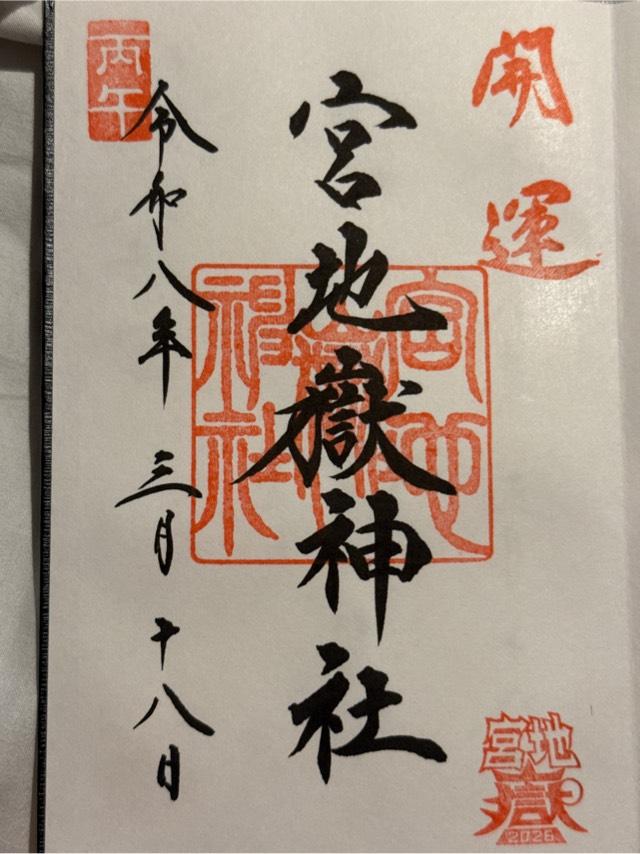 開運
宮地嶽神社
宮地嶽神社
令和八年 三月 十八日
丙午
宮地
嶽
2026